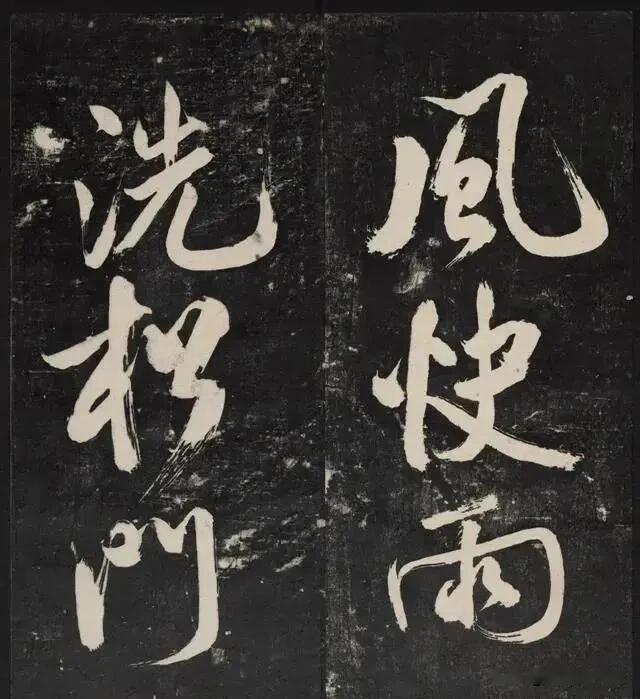 風快雨
洗松門